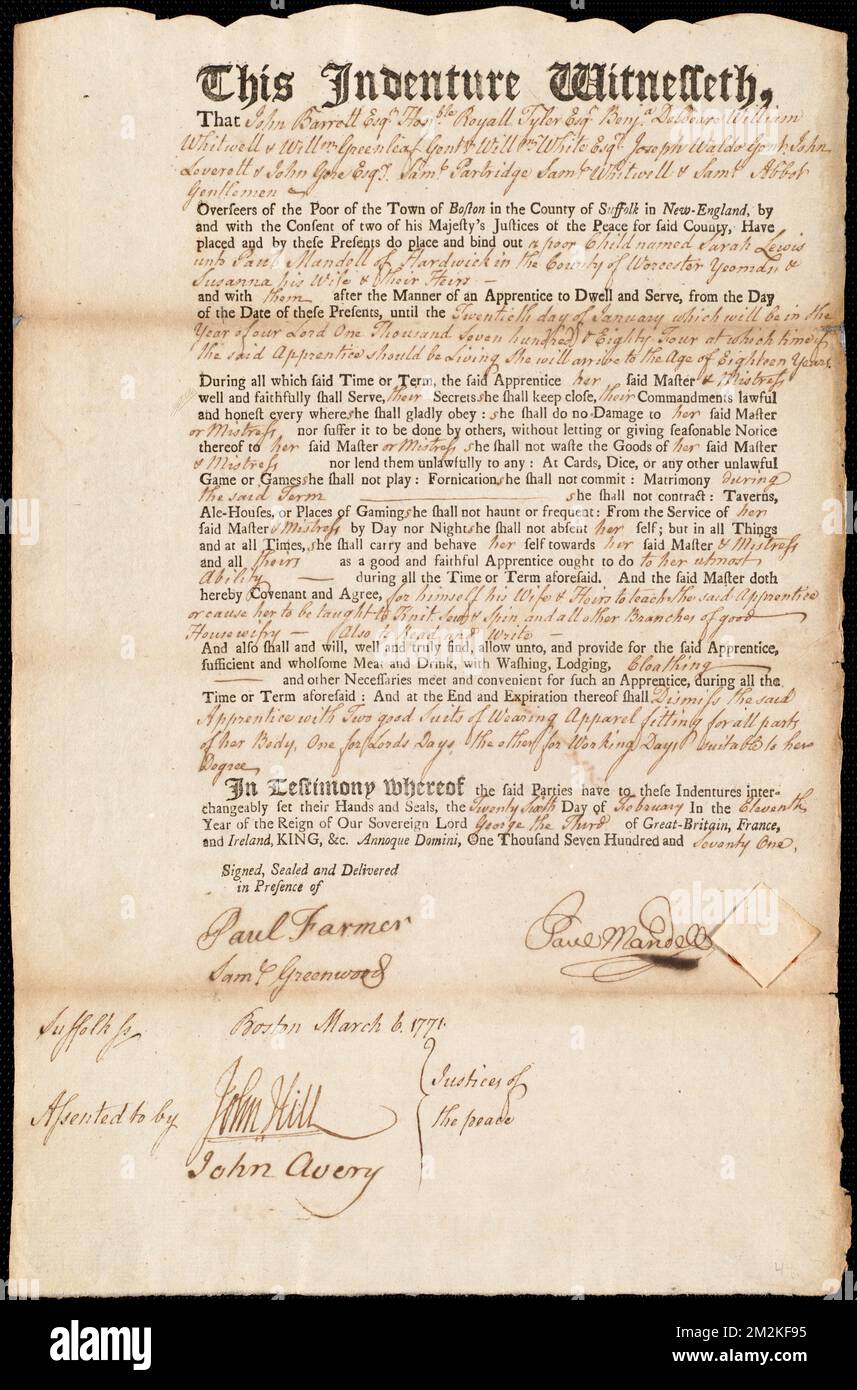 This Indenture Witnesseth,
That John Barrett Esqr. Honble Royall Tyler Esqr. Benja. William
Whitwell & Willm Greenleaf Gent & Willm White Esqr. Joseph Waldo Gent. John
Leverett & John Gore Esqr. Saml. Partridge Saml. Whitwell & Saml. Abbot
Gentlemen
Overseers of the Poor of the Town of Boston in the County of Suffolk in New-England, by
and with the Consent of two of his Majesty's Justices of the Peace for said County, Have
placed and by these Presents do place and bind out a poor Child named Sarah Lewis
unto Paul Mandell of Hardwick in the County of Worcester Yeoman &
Susanna his Wife & their Heirs —
and with them after the Manner of an Apprentice to Dwell and Serve, from the Day
of the Date of these Presents, until the Twentieth day of January which will be in the
Year of our Lord One Thousand Seven hundred & Eighty Four at which time if
the said Apprentice should be Living She will arrive to the Age of Eighteen Years.
During all which said Time or Term, the said Apprentice her said Master & Mistress
well and faithfully shall Serve, their Secrets she shall keep close, their Commandments lawful
and honest every where she shall gladly obey : she shall do no Damage to her said Master
or Mistress, nor suffer it to be done by others, without letting or giving seasonable Notice
thereof to her said Master or Mistress she shall not waste the Goods of her said Master
& Mistress nor lend them unlawfully to any : At Cards, Dice, or any other unlawful
Game or Games she shall not play : Fornication she shall not commit : Matrimony during
the said Term — she shall not contract : Taverns,
Ale-Houses, or Places of Gaming she shall not haunt or frequent : From the Service of her
said Master & Mistress by Day nor Night she shall not absent her self ; but in all Things
and at all Times, she shall carry and behave her self towards her said Master & Mistress
and all theirs as a good and faithful Apprentice ought to do to her utmost
Ability — during all the Time or Term aforesaid. And the said Master doth
hereby Covenant and Agree, for himself his Wife & Heirs to teach the said Apprentice
or cause her to be taught to Knit Sew & Spin and all other Branches of good
Housewifry — Also to Read and Write —
And also shall and will, well and truly find, allow unto, and provide for the said Apprentice,
sufficient and wholsome Meat and Drink, with Washing, Lodging, Cloathing —
— and other Necessaries meet and convenient for such an Apprentice, during all the
Time or Term aforesaid : And at the End and Expiration thereof shall Dismiss the said
Apprentice with Two good Suits of Wearing Apparel fitting for all parts
of her Body, One for Lords Days, the other for Working Days suitable to her
Degree
In Testimony whereof the said Parties have to these Indentures inter-
changeably set their Hands and Seals, the Twenty Sixth Day of February In the Eleventh
Year of the Reign of Our Sovereign Lord George the Third of Great-Britain, France,
and Ireland, KING, &c. Annoque Domini, One Thousand Seven Hundred and Seventy One.
Signed, Sealed and Delivered
in Presence of
Paul Farmer
Paul Mandell
Saml. Greenwood
Suffolk ss
Boston March 6. 1771.
Assented to by
John Hill
John Avery
Justices of
the peace
alamy
Image ID: 2M2KF95
www.alamy.com